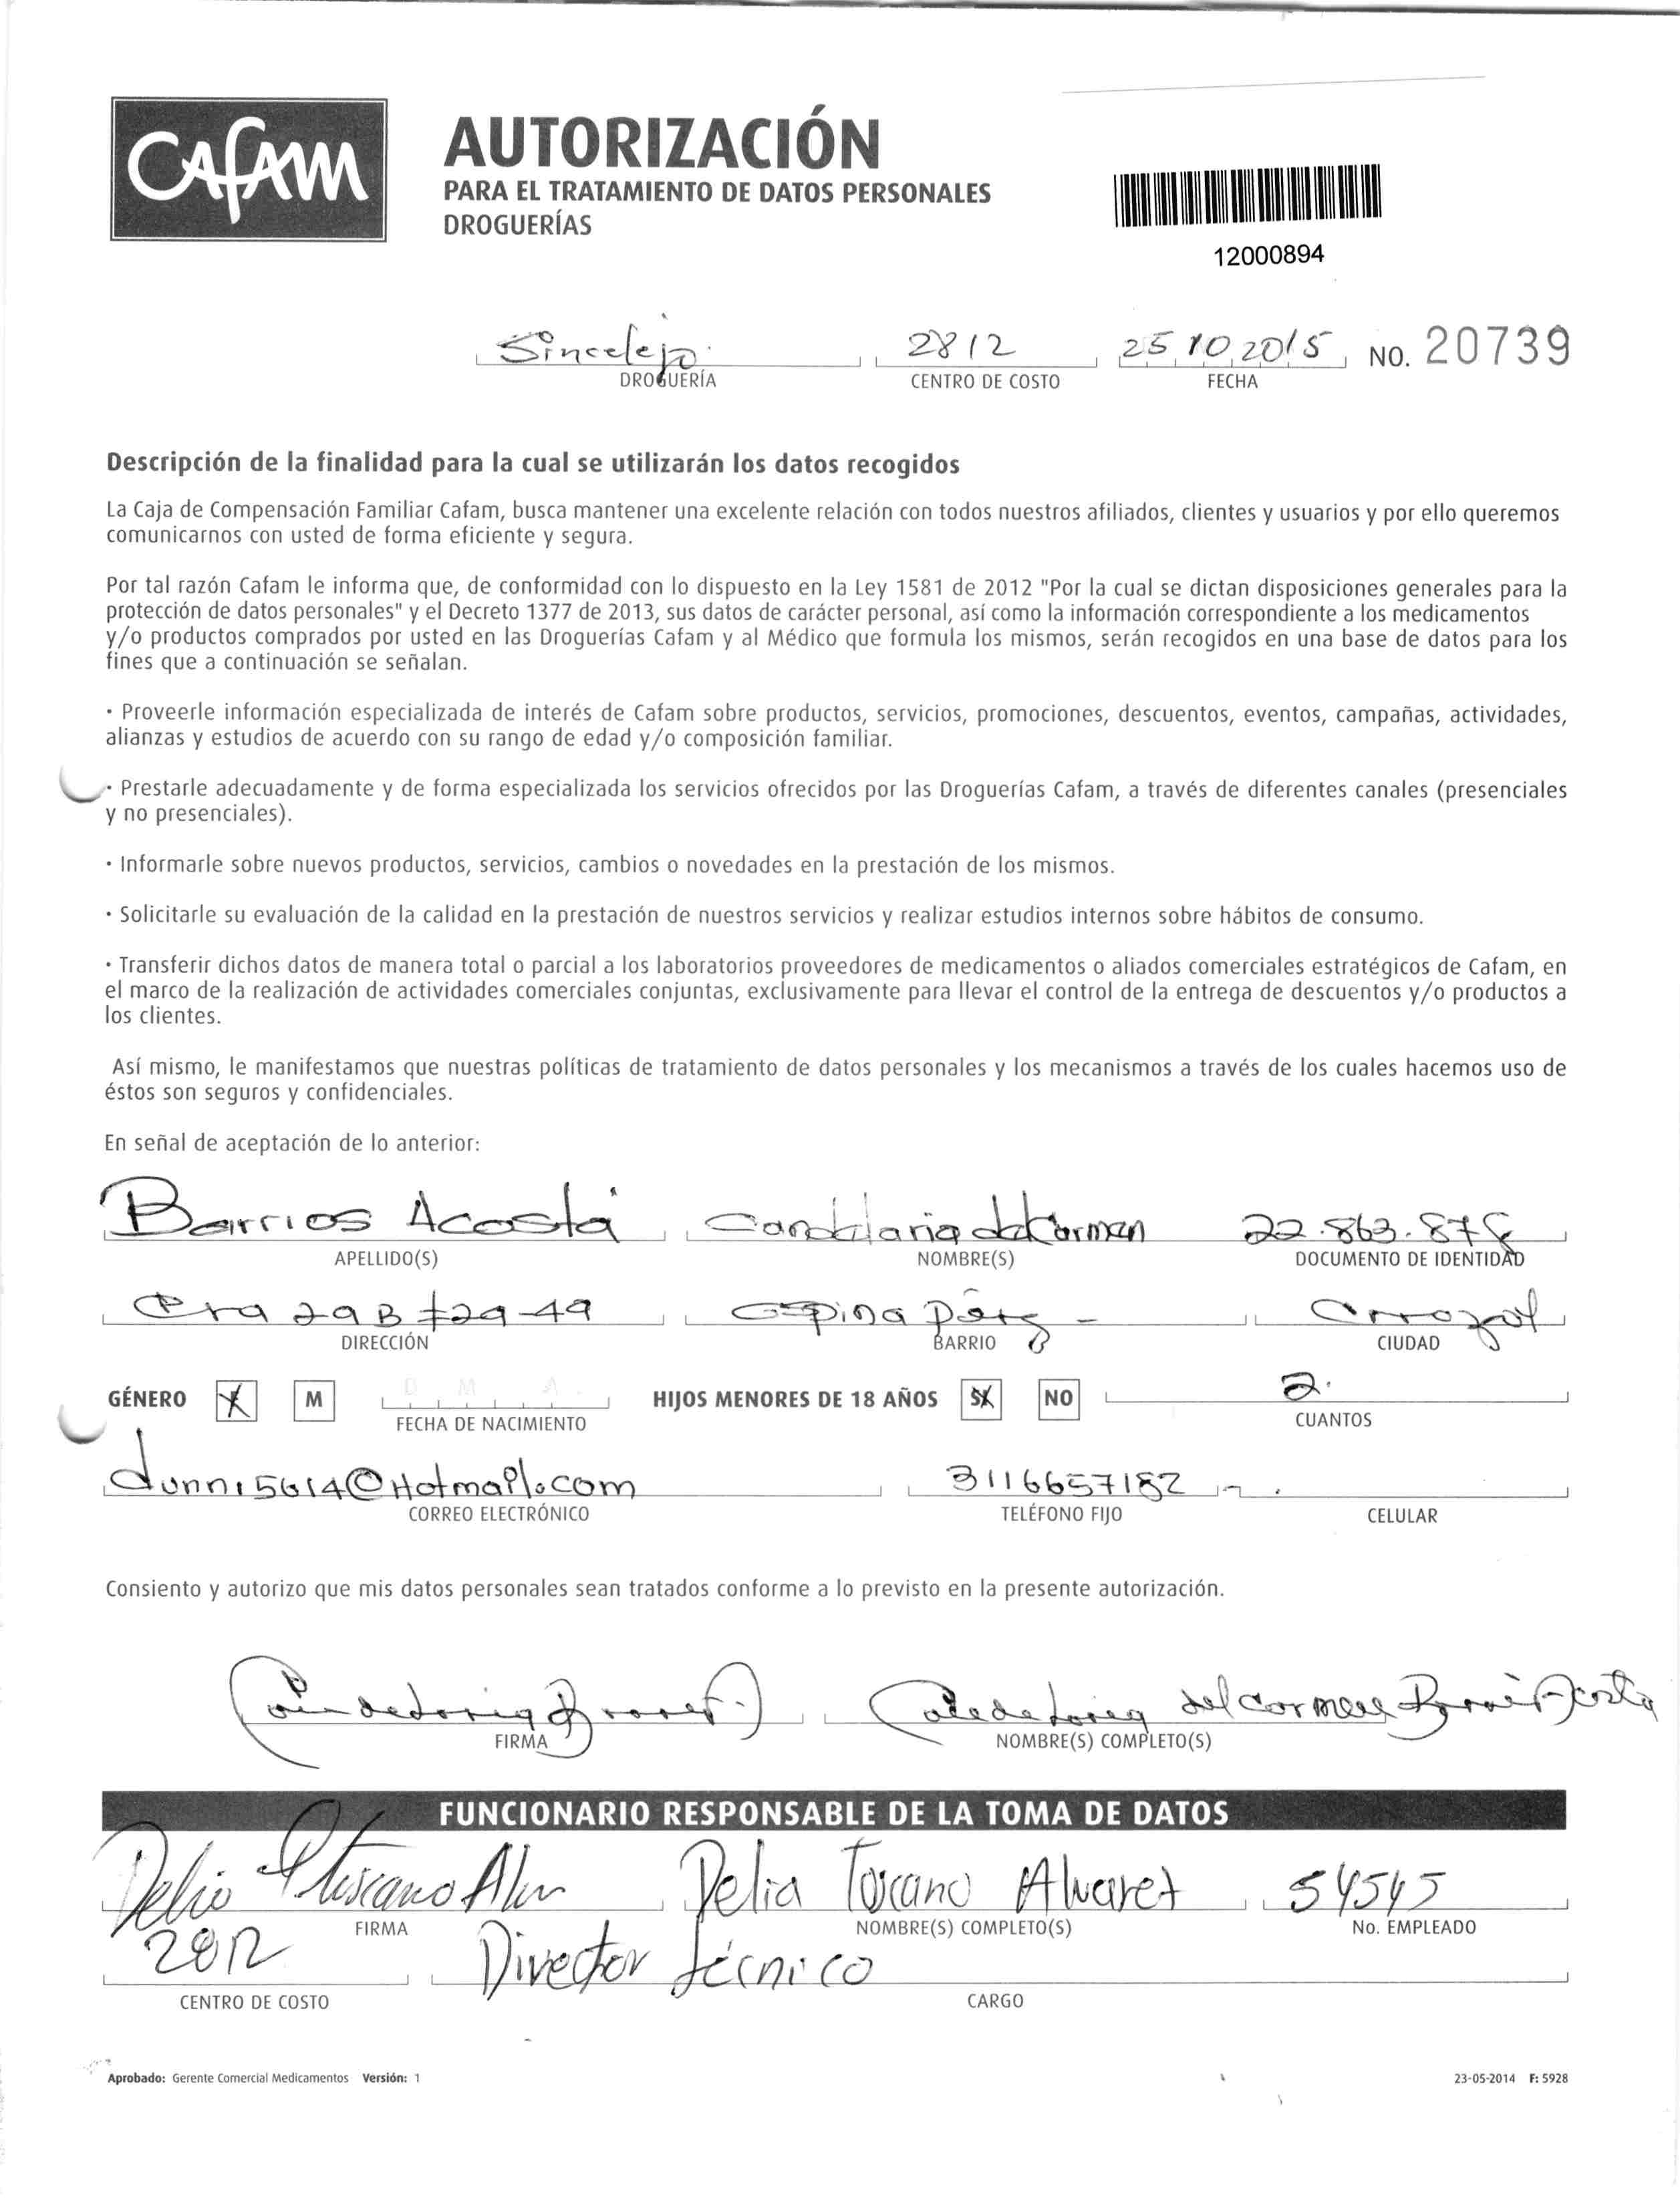 CAFAM
AUTORIZACIÓN
PARA EL TRATAMIENTO DE DATOS PERSONALES
DROGUERÍAS
12000894
Sincelejo 2812 25 10 2015 NO. 20739
DROGUERÍA CENTRO DE COSTO FECHA
Descripción de la finalidad para la cual se utilizarán los datos recogidos
La Caja de Compensación Familiar Cafam, busca mantener una excelente relación con todos nuestros afiliados, clientes y usuarios y por ello queremos
comunicarnos con usted de forma eficiente y segura.
Por tal razón Cafam le informa que, de conformidad con lo dispuesto en la Ley 1581 de 2012 "Por la cual se dictan disposiciones generales para la
protección de datos personales" y el Decreto 1377 de 2013, sus datos de carácter personal, así como la información correspondiente a los medicamentos
y/o productos comprados por usted en las Droguerías Cafam y al Médico que formula los mismos, serán recogidos en una base de datos para los
fines que a continuación se señalan.
· Proveerle información especializada de interés de Cafam sobre productos, servicios, promociones, descuentos, eventos, campañas, actividades,
alianzas y estudios de acuerdo con su rango de edad y/o composición familiar.
· Prestarle adecuadamente y de forma especializada los servicios ofrecidos por las Droguerías Cafam, a través de diferentes canales (presenciales
y no presenciales).
· Informarle sobre nuevos productos, servicios, cambios o novedades en la prestación de los mismos.
· Solicitarle su evaluación de la calidad en la prestación de nuestros servicios y realizar estudios internos sobre hábitos de consumo.
· Transferir dichos datos de manera total o parcial a los laboratorios proveedores de medicamentos o aliados comerciales estratégicos de Cafam, en
el marco de la realización de actividades comerciales conjuntas, exclusivamente para llevar el control de la entrega de descuentos y/o productos a
los clientes.
Así mismo, le manifestamos que nuestras políticas de tratamiento de datos personales y los mecanismos a través de los cuales hacemos uso de
éstos son seguros y confidenciales.
En señal de aceptación de lo anterior:
Barrios Acosta Candelaria del Carmen 22.863.878
APELLIDO(S) NOMBRE(S) DOCUMENTO DE IDENTIDAD
Cra 29 B #29-49 Espina
DIRECCIÓN BARRIO CIUDAD
GÉNERO M D M A HIJOS MENORES DE 18 AÑOS SI NO 2.
FECHA DE NACIMIENTO CUANTOS
dunni5614@Hotmail.com 3116657182
CORREO ELECTRÓNICO TELÉFONO FIJO CELULAR
Consiento y autorizo que mis datos personales sean tratados conforme a lo previsto en la presente autorización.
del Carmen
FIRMA NOMBRE(S) COMPLETO(S)
FUNCIONARIO RESPONSABLE DE LA TOMA DE DATOS
Delia Toscano Alvarez 54545
FIRMA NOMBRE(S) COMPLETO(S) No. EMPLEADO
2812 Director técnico
CENTRO DE COSTO CARGO
Aprobado: Gerente Comercial Medicamentos Versión: 1 23-05-2014 F: 5928